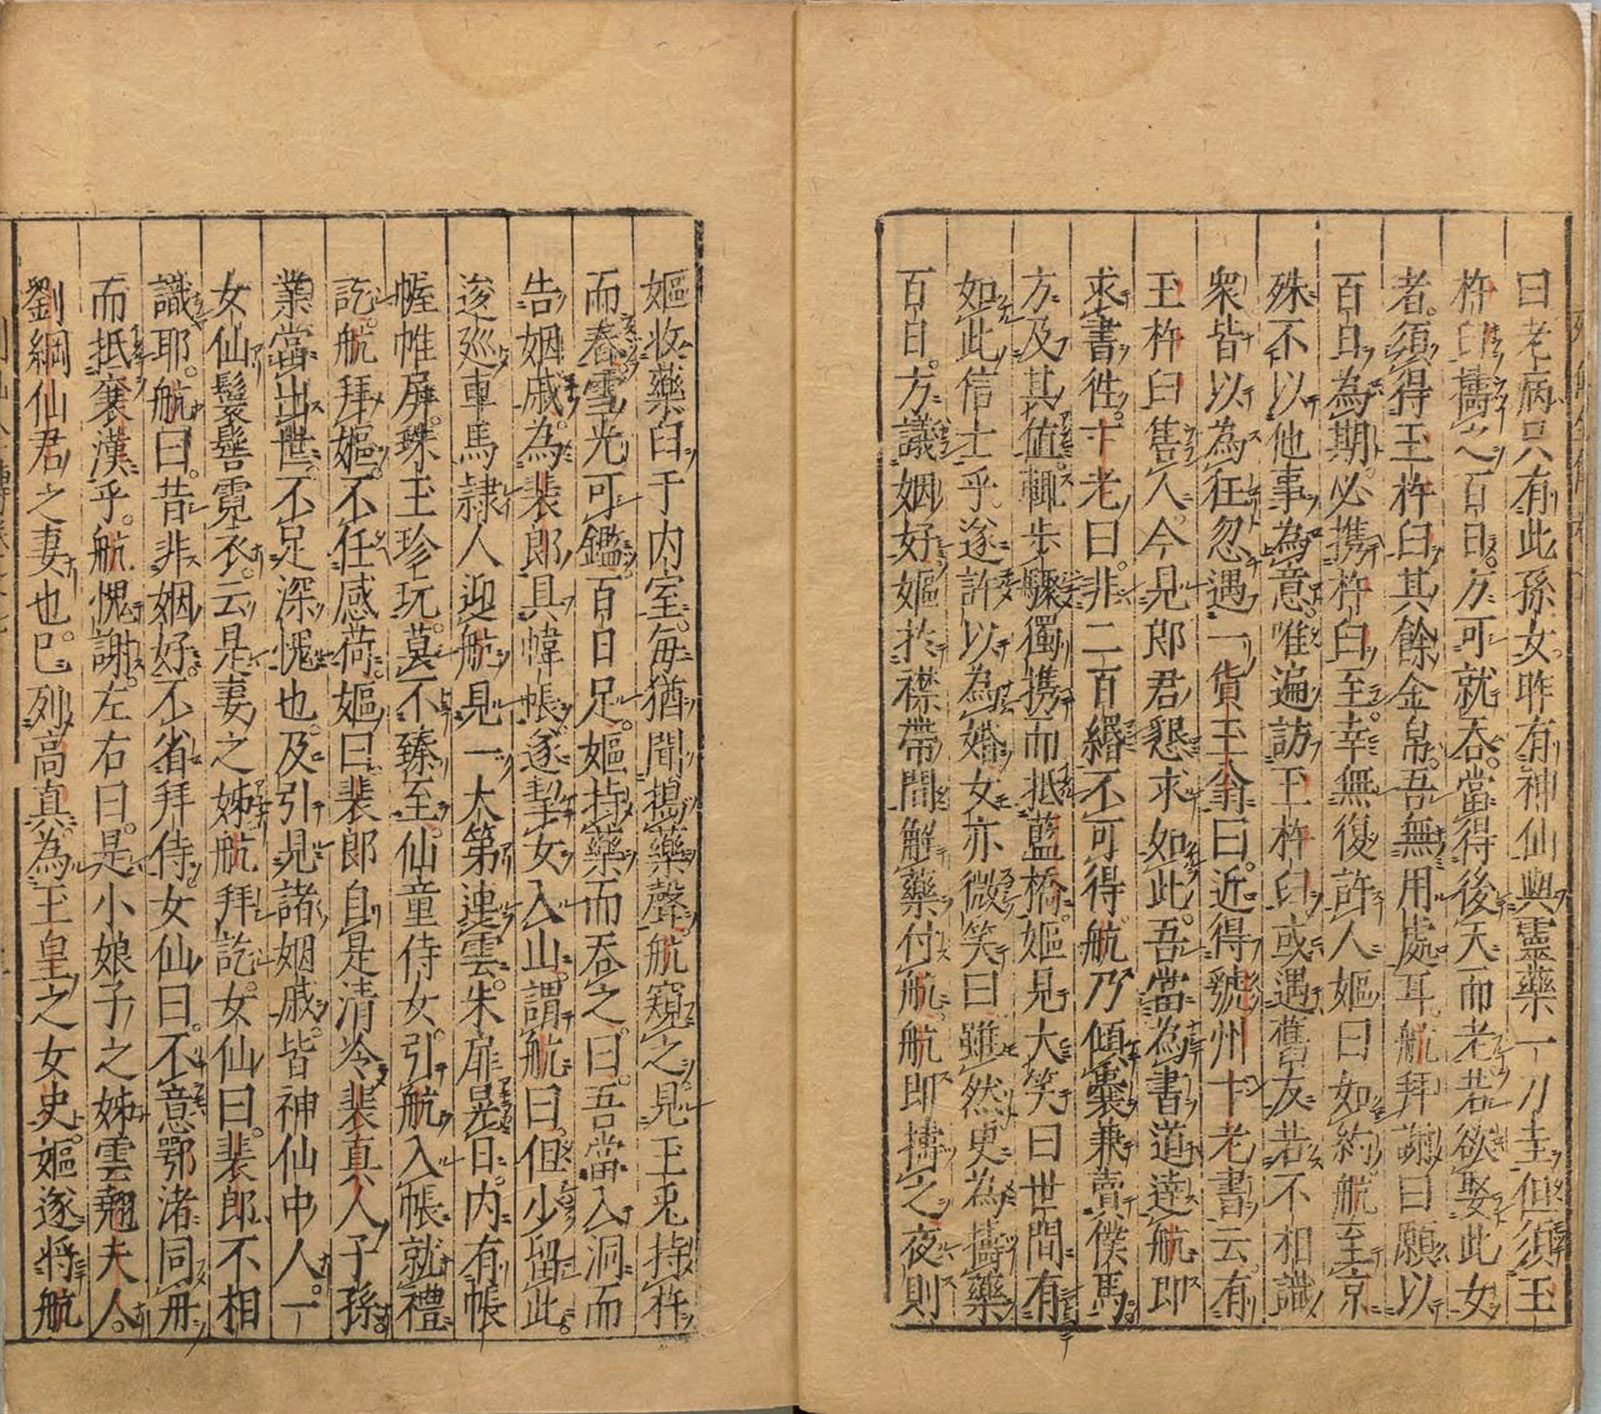 曰老病只有此孫女昨有神仙與靈藥一刀圭但須玉
杵臼擣之百日方可就吞當得後天而老若欲娶此女
者須得玉杵臼其餘金帛吾無用處耳航拜謝曰願以
百日為期必携杵臼至幸無復許人嫗曰如約航至京
殊不以他事為意唯遍訪玉杵臼或遇舊友若不相識
衆皆以為狂忽遇一貨玉翁曰近得虢州卞老書云有
玉杵臼售人今見郎君懇求如此吾當為書道達航即
求書徃卞老曰非二百緡不可得航乃傾囊兼賣僕馬
方及其值輒步驟獨携而抵藍橋嫗見大笑曰世間有
如此信士乎遂許以為婚女亦微笑曰雖然更為擣藥
百日方議姻好嫗於襟帶間解藥付航航即擣之夜則
嫗收藥臼于内室每猶聞搗藥聲航窺之見玉兎持杵
而舂雪光可鑑百日足嫗持藥而吞之曰吾當入洞而
告姻戚為裴郎具幃帳遂挈女入山謂航曰但少留此
逡巡車馬隷人迎航見一大第連雲朱扉晃日内有帳
幄帷屏珠玉珍玩莫不臻至仙童侍女引航入帳就禮
訖航拜嫗不任感荷嫗曰裴郎自是清冷裴真人子孫
業當出世不足深愧也及引見諸姻戚皆神仙中人一
女仙鬟髻霓衣云是妻之姊航拜訖女仙曰裴郎不相
識耶航曰昔非姻好不省拜侍女仙曰不意鄂渚同舟
而抵襄漢乎航愧謝左右曰是小娘子之姊雲翹夫人
劉綱仙君之妻也已列高真為玉皇之女史嫗遂將航